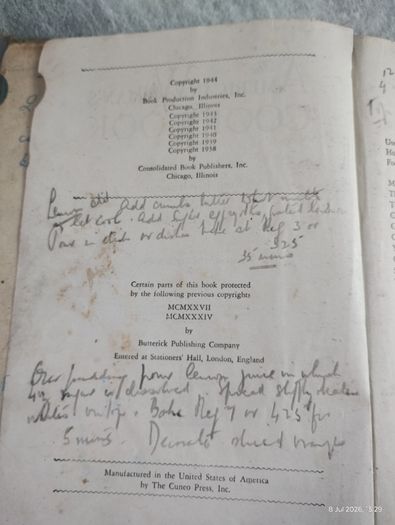 Copyright 1944
by
Book Production Industries, Inc.
Chicago, Illinois
Copyright 1943
Copyright 1942
Copyright 1941
Copyright 1940
Copyright 1939
Copyright 1938
by
Consolidated Book Publishers, Inc.
Chicago, Illinois
Add crumbs butter
let cool. Add
Pour in dish or dishes bake at Reg 3 or
325
35 mins
Certain parts of this book protected
by the following previous copyrights
MCMXXVII
MCMXXXIV
by
Butterick Publishing Company
Entered at Stationers' Hall, London, England
Over pudding pour lemon juice in which
4oz sugar is dissolved. Spread stiffly beaten
whites on top. Bake Reg 7 or 425 for
5 mins. Decorate sliced oranges
Manufactured in the United States of America
by The Cuneo Press, Inc.
8 Jul 2026, 15:29